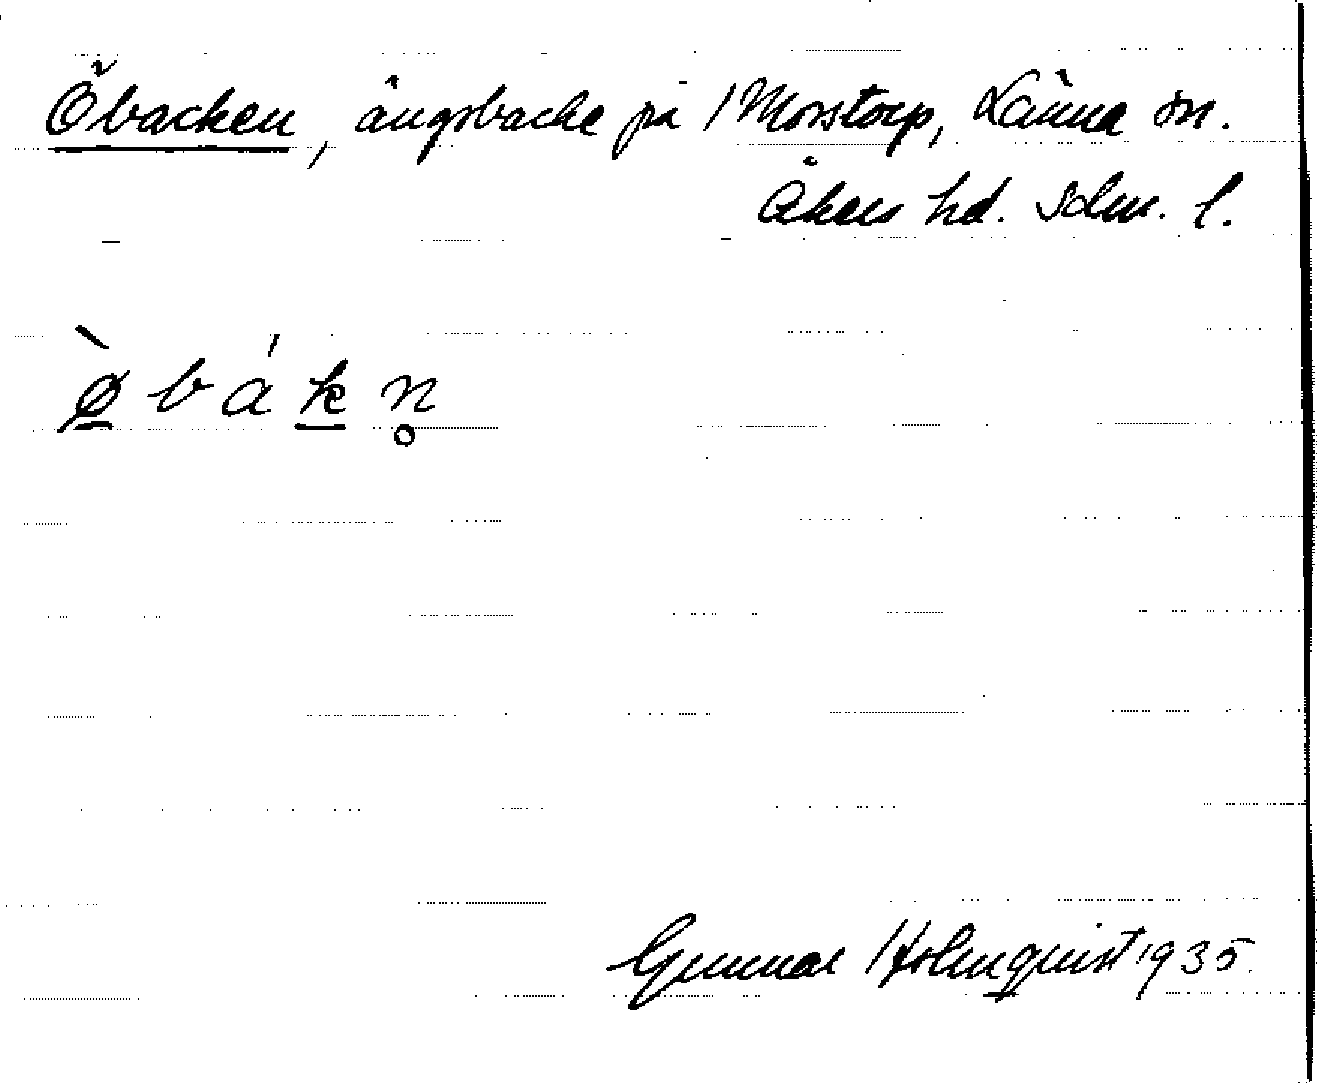 Öbacken, ängsbacke på Morstorp, Länna sn.
Åkers hd. Sdm. l.
ø̀ b á k n̥
Gunnar Holmquist 1935.